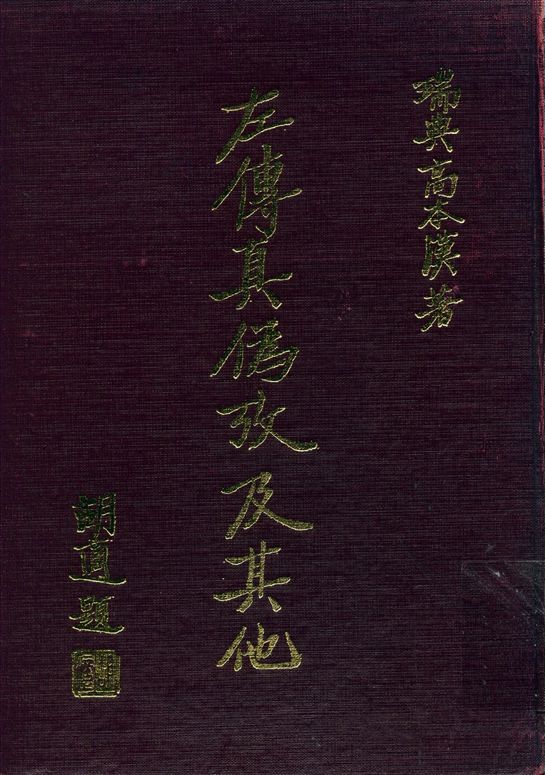 瑞典高本漢著
左傳真僞攷及其他
胡適題